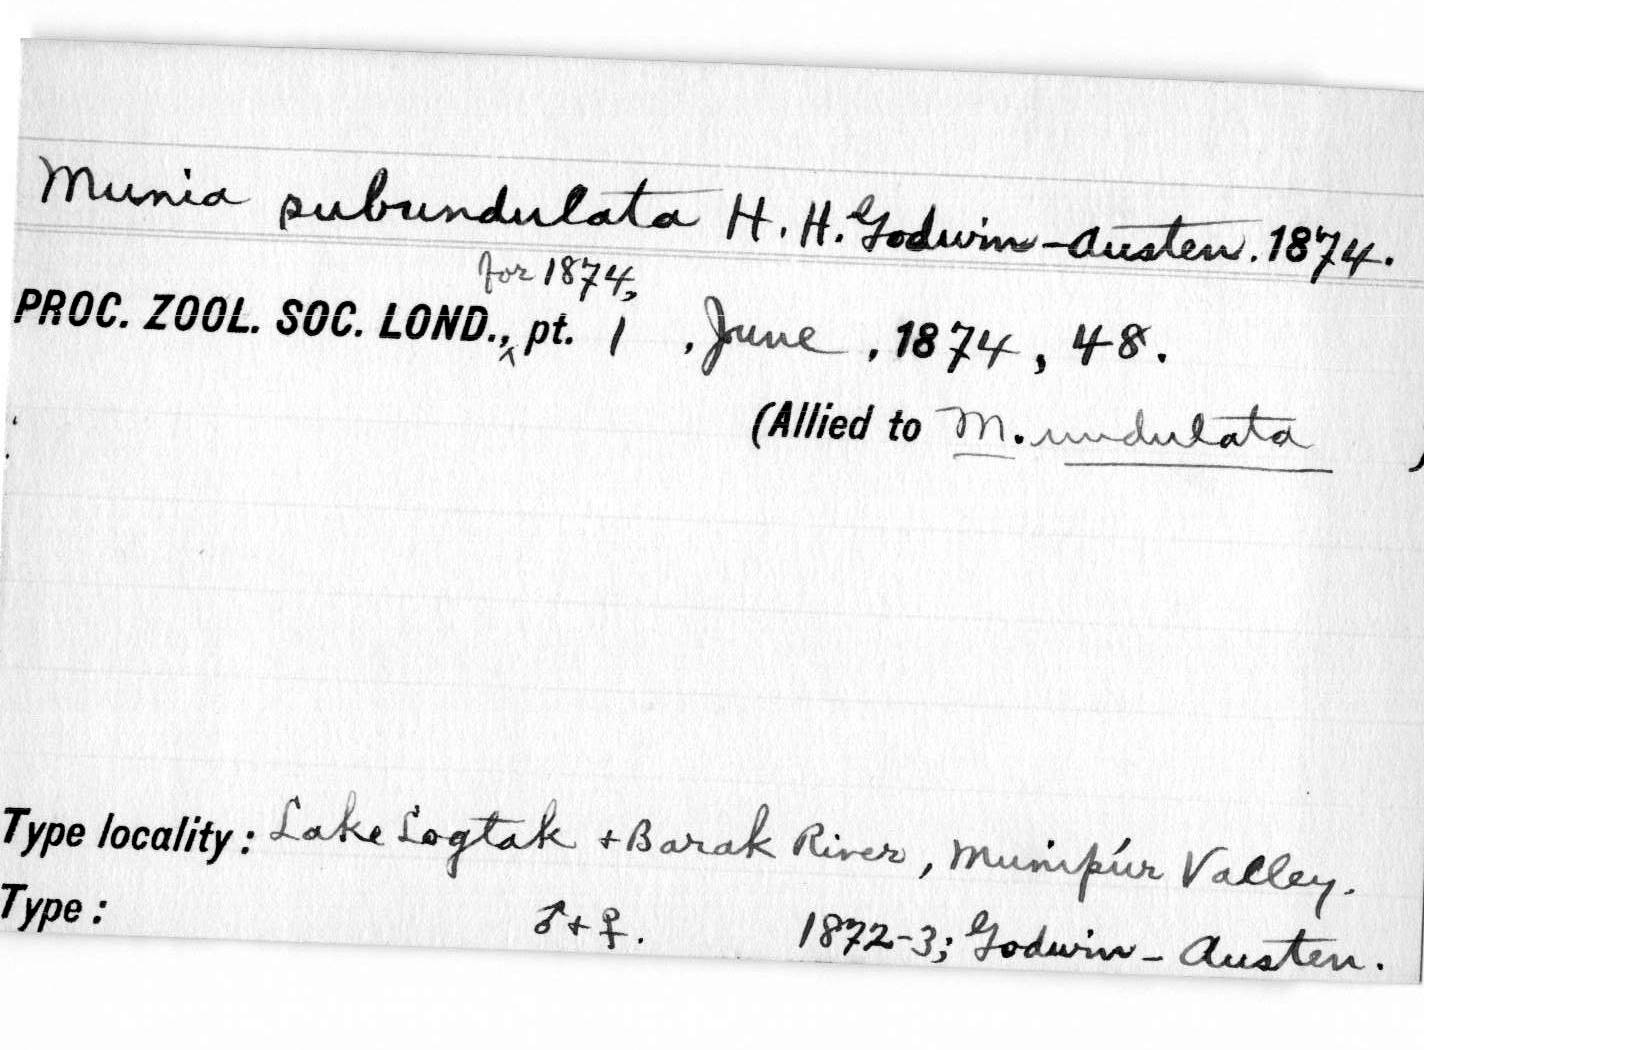 Munia subundulata H. H. Godwin-Austen. 1874.
for 1874,
PROC. ZOOL. SOC. LOND., ^ pt. 1 , June , 1874 , 48.
(Allied to M. undulata )
Type locality: Lake Logtak + Barak River, Munipúr Valley.
Type: ♂ + ♀. 1872-3; Godwin-Austen.